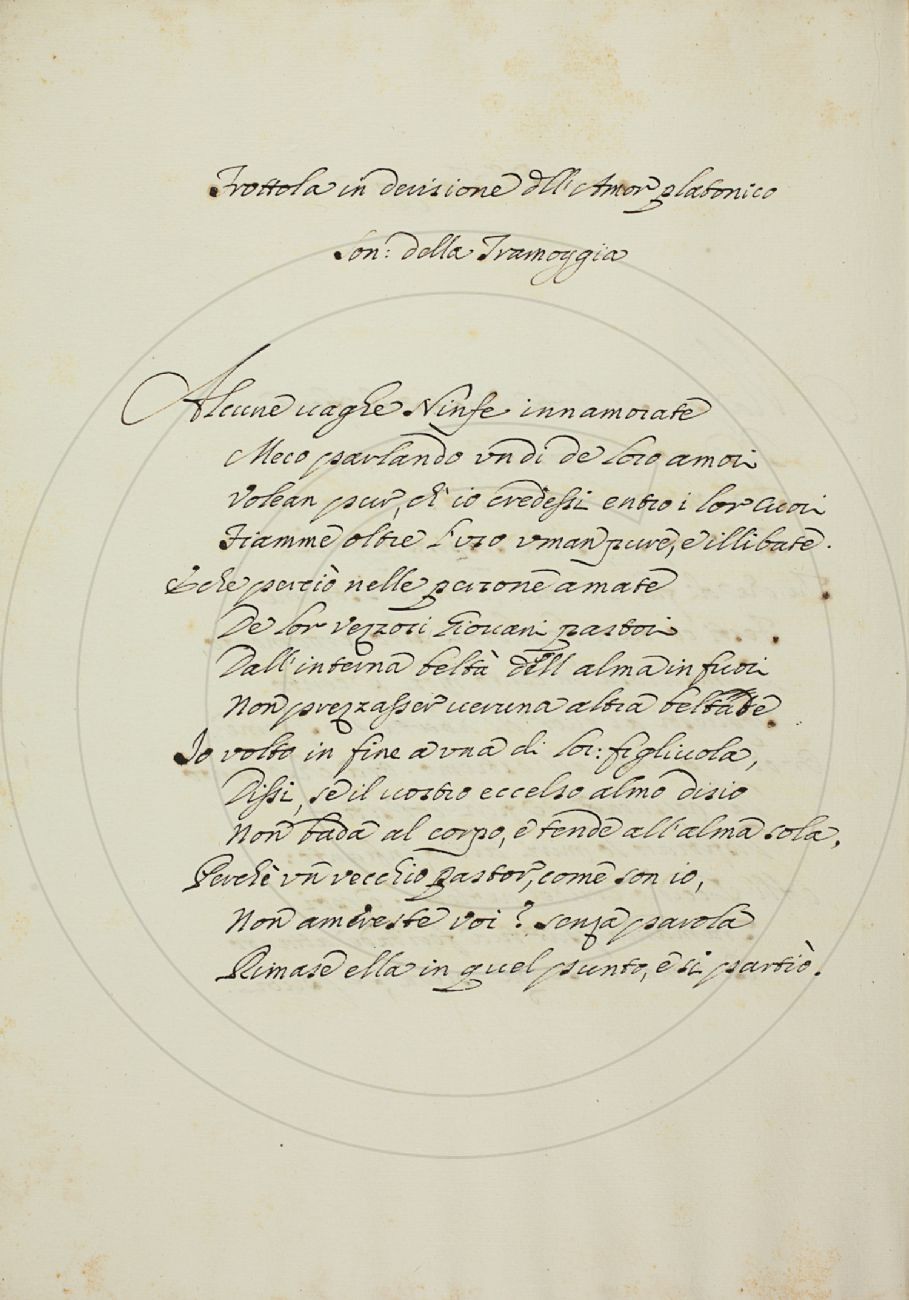 Frottola in derisione dell'Amor platonico
Son: della Tramoggia
Alcune uaghe Ninfe innamorate
Meco parlando vn di de loro amori
Volean pur, ch'io credessi entro i lor cuori
Fiamme oltre l'uso vman pure, e illibate.
E che perciò nelle persone amate
De lor vezzosi Giouani pastori
Dall'interna beltà dell alma in fuori
Non prezzasser ueruna altra beltate
Io volto in fine a vna di lor: figliuola,
Dissi, se il uostro eccelso almo disio
Non bada al corpo, e tende all'alma sola,
Perchè vn vecchio Pastor, come son io,
Non amereste voi? senza parola
Rimase ella in quel punto, e si partiò.